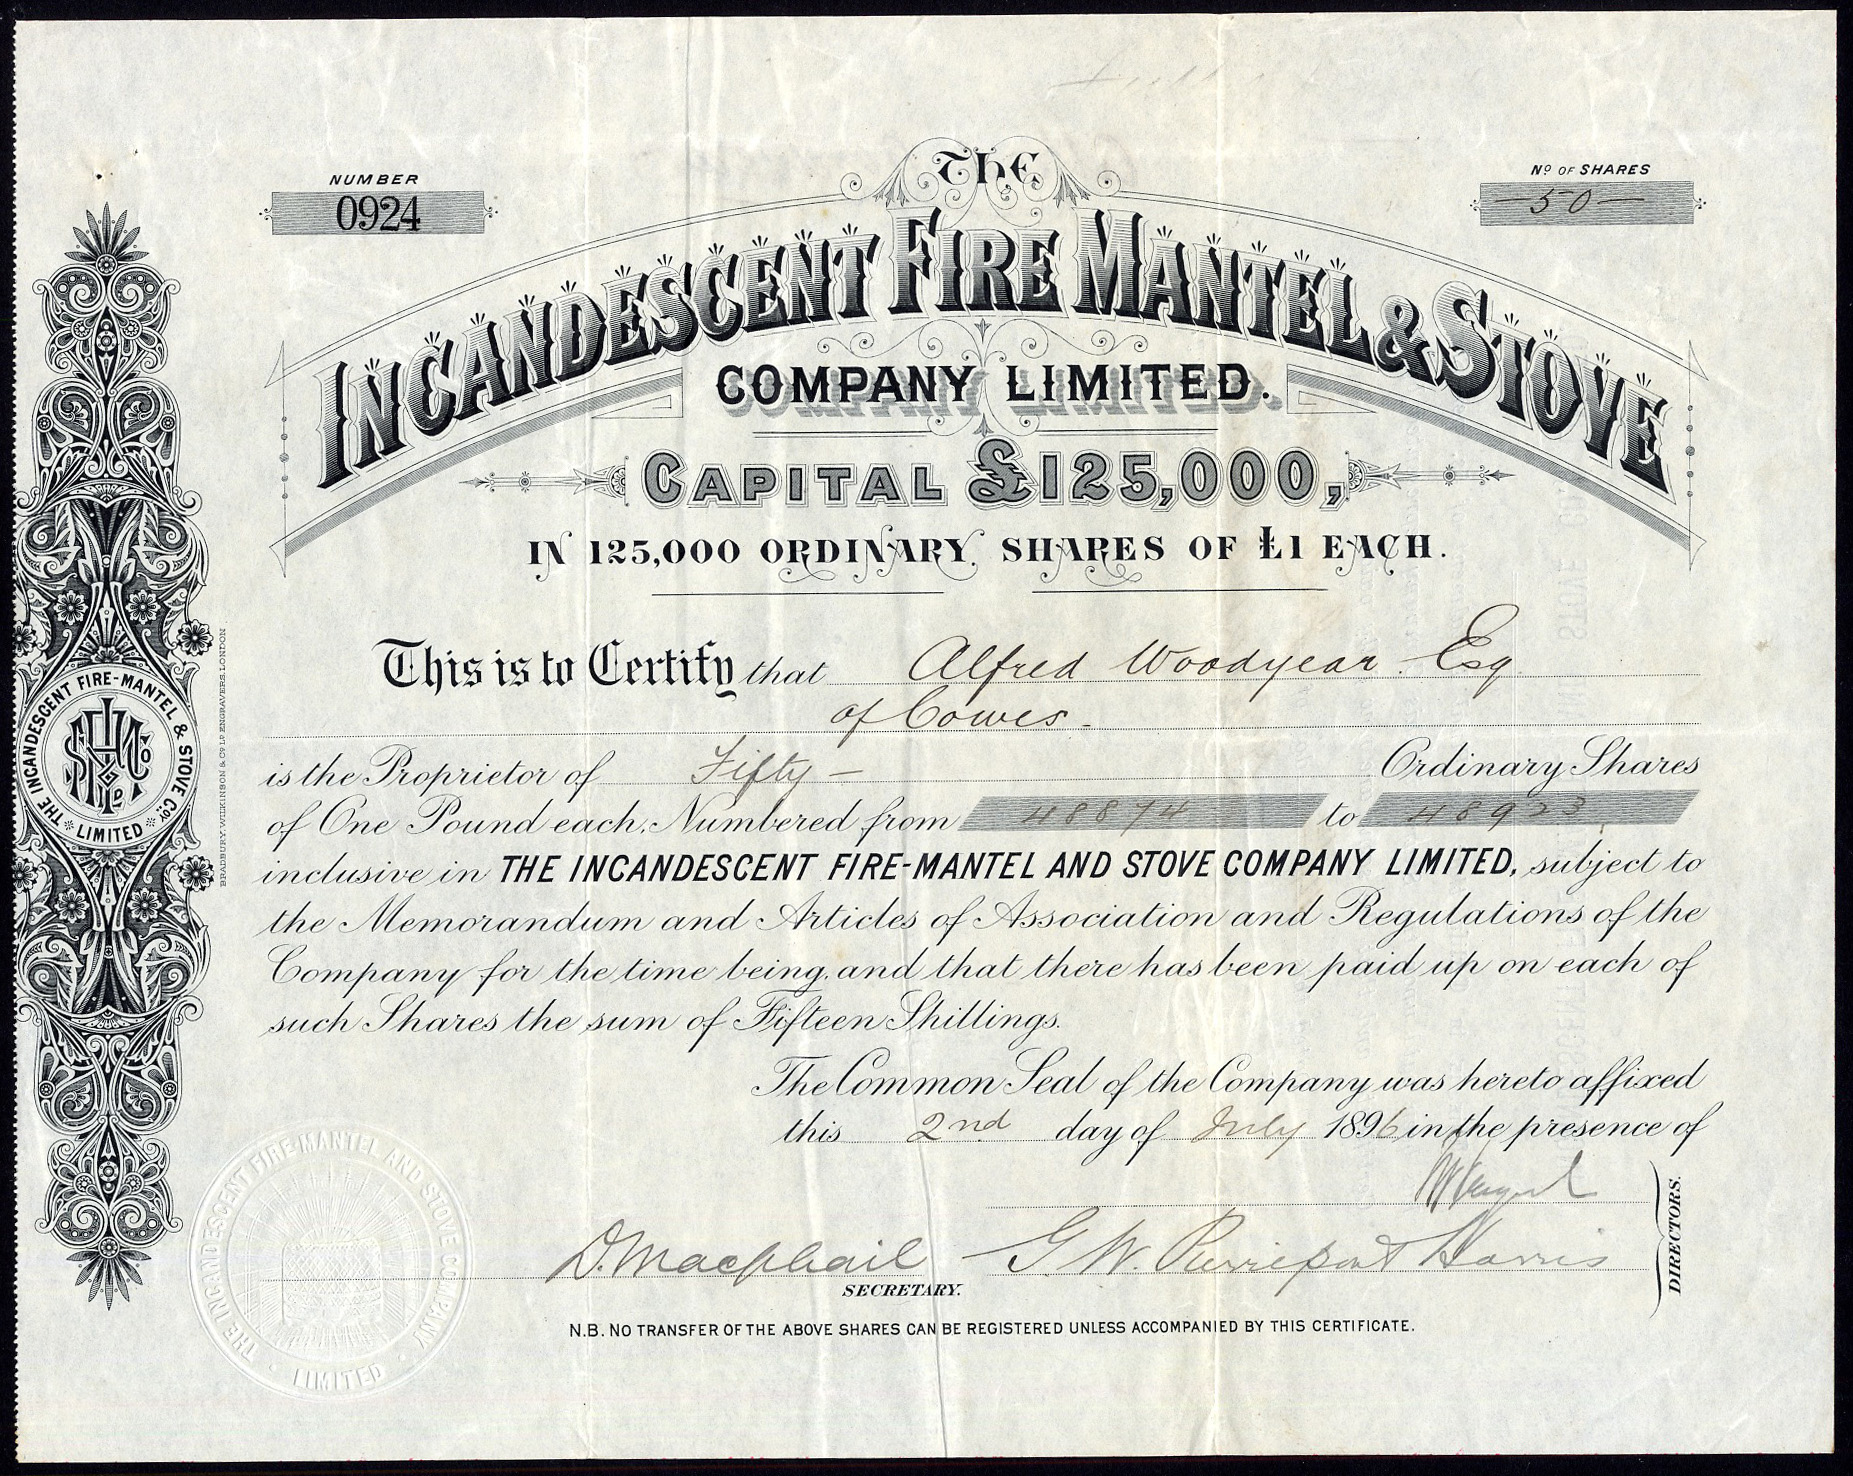 NUMBER
0924
Nº OF SHARES
— 50 —
THE
INCANDESCENT FIRE MANTEL & STOVE
COMPANY LIMITED.
CAPITAL £125,000,
IN 125,000 ORDINARY SHARES OF £1 EACH.
This is to Certify that Alfred Woodyear Esq
of Cowes -
is the Proprietor of Fifty — Ordinary Shares
of One Pound each, Numbered from 48874 to 48923
inclusive in THE INCANDESCENT FIRE-MANTEL AND STOVE COMPANY LIMITED, subject to
the Memorandum and Articles of Association and Regulations of the
Company for the time being, and that there has been paid up on each of
such Shares the sum of Fifteen Shillings.
The Common Seal of the Company was hereto affixed
this 2nd day of July 1896 in the presence of
D. Macphail
SECRETARY.
G W. Pierrepont Harris
DIRECTORS.
N.B. NO TRANSFER OF THE ABOVE SHARES CAN BE REGISTERED UNLESS ACCOMPANIED BY THIS CERTIFICATE.
THE INCANDESCENT FIRE-MANTEL & STOVE COY
LIMITED
BRADBURY, WILKINSON & Cº Lᴰ ENGRAVERS, LONDON.
THE INCANDESCENT FIRE MANTEL AND STOVE COMPANY
LIMITED